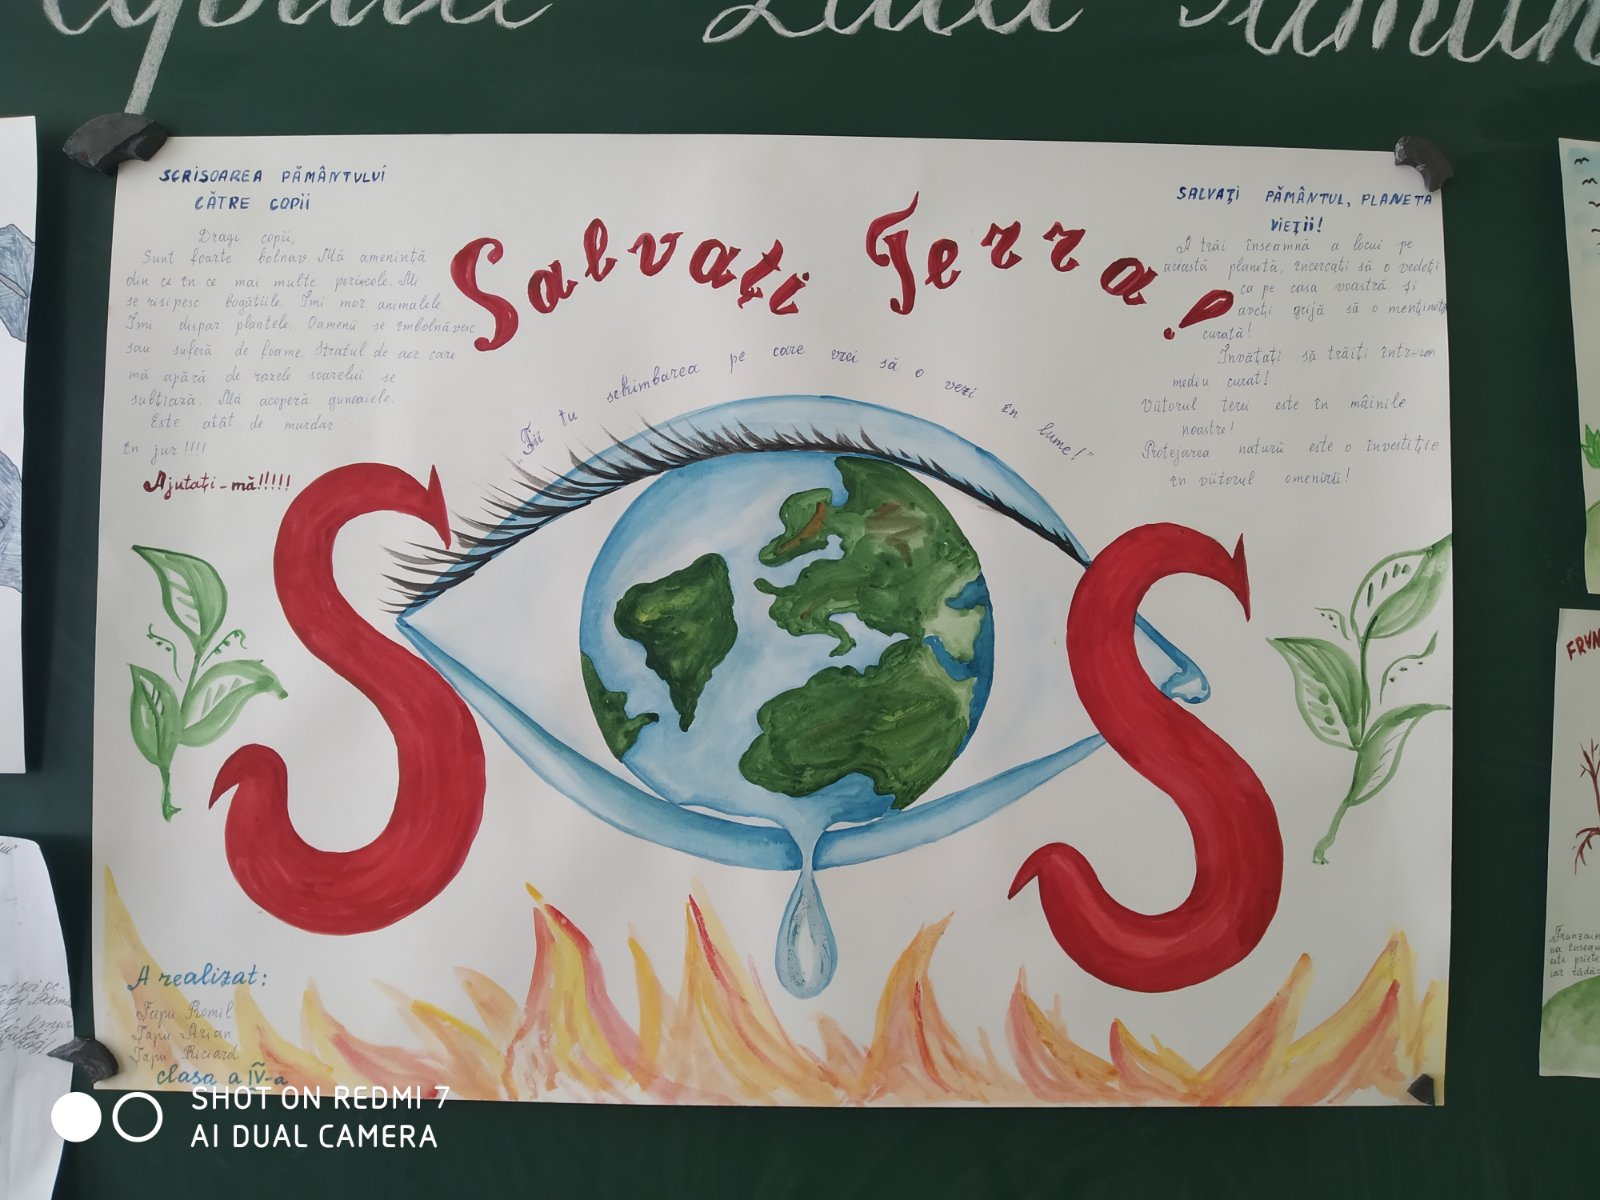 SCRISOAREA PĂMÂNTULUI
CĂTRE COPII
Dragi copii,
Sunt foarte bolnav. Mă amenință
din ce în ce mai multe pericole. Mi
se risipesc bogățiile. Îmi mor animalele.
Îmi dispar plantele. Oamenii se îmbolnăvesc
sau suferă de foame. Stratul de aer care
mă apără de razele soarelui se
subțiază. Mă acoperă gunoaiele.
Este atât de murdar
în jur!!!!
Ajutați-mă!!!!!
Salvați Terra!
"Fii tu schimbarea pe care vrei să o vezi în lume!"
SALVAȚI PĂMÂNTUL, PLANETA
VIEȚII!
A trăi înseamnă a locui pe
această planetă, încercați să o vedeți
ca pe casa voastră și
aveți grijă să o mențineți
curată!
Învățați să trăiți într-un
mediu curat!
Viitorul terei este în mâinile
noastre!
Protejarea naturii este o investiție
în viitorul omenirii!
S S
A realizat:
Țapu Romil
Țapu Arian
Țapu Riciard
clasa a IV-a
FRUN
SHOT ON REDMI 7
AI DUAL CAMERA